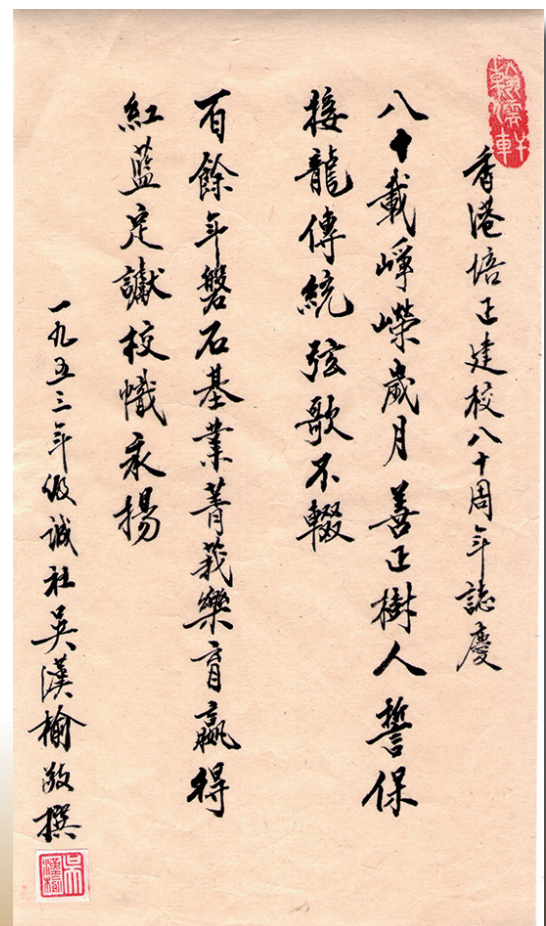 香港培正建校八十周年誌慶
八十載崢嶸歲月善正樹人誓保
接龍傳統弦歌不輟
百餘年磐石基業菁莪樂育贏得
紅藍定讞校幟永揚
一九五三年級誠社吳漢榆敬撰
吳漢榆